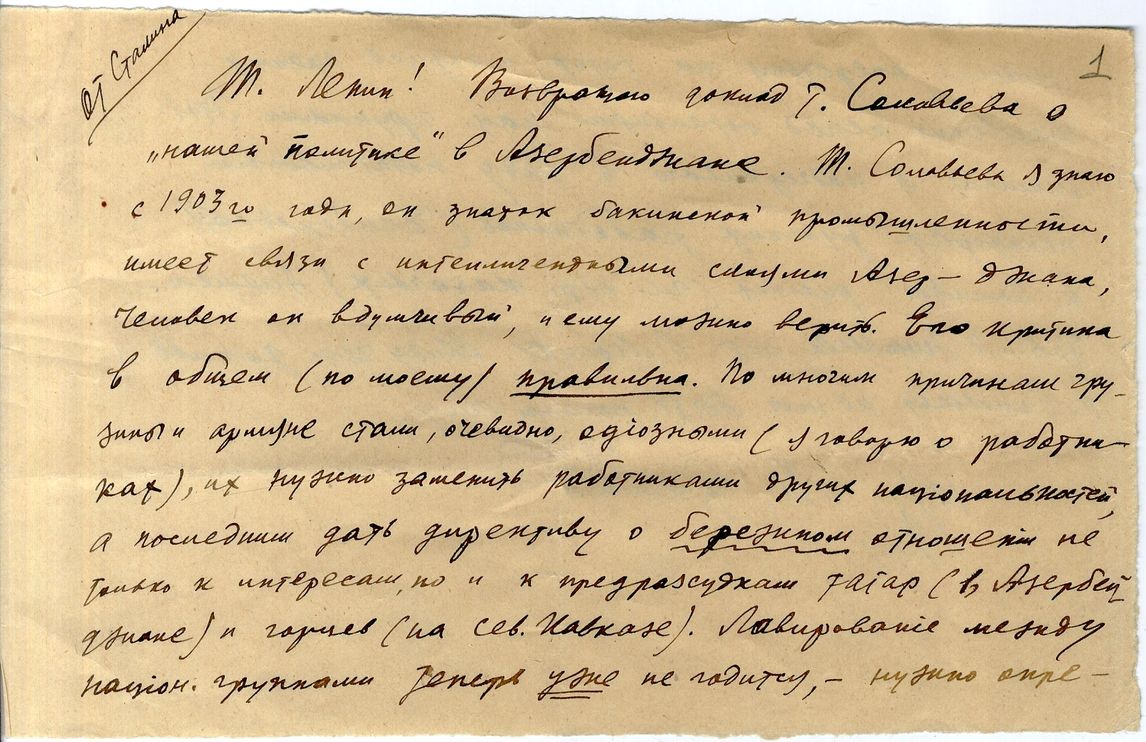 От Сталина
1
Т. Ленин! Возвращаю доклад т. Соловьева о
„нашей политике" в Азербейджане. Т. Соловьева я знаю
с 1903го года, он знаток бакинской промышленности,
имеет связи с интеллигентными слоями Азер–джана,
человек он вдумчивый, и ему можно верить. Его критика
в общем (по моему) правильна. По многим причинам гру-
зины и армяне стали, очевидно, одіозными (я говорю о работни-
ках), их нужно заменить работниками других національностей,
а последним дать директиву о бережном отношеніи не
только к интересам, но и к предразсудкам татар (в Азербей-
джане) и горцев (на сев. Кавказе). Лавированіе между
націон. группами теперь уже не годится, – нужно опре-